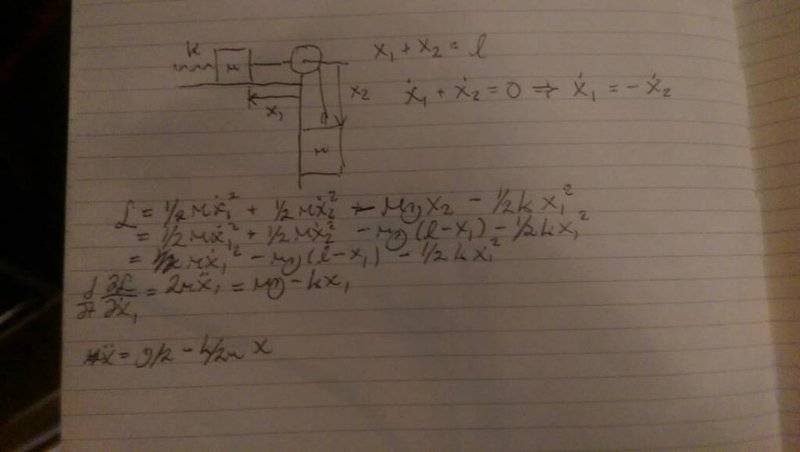 k
m
x₁ + x₂ = l
x₂
ẋ₁ + ẋ₂ = 0 ⇒ ẋ₁ = -ẋ₂
x₁
m
L = 1/2 mẋ₁² + 1/2 mẋ₂² - mg x₂ - 1/2 k x₁²
= 1/2 mẋ₁² + 1/2 mẋ₂² - mg (l-x₁) - 1/2 k x₁²
= mẋ₁² - mg (l-x₁) - 1/2 k x₁²
d/dt ∂L/∂ẋ₁ = 2mẍ₁ = mg - kx₁
ẍ = g/2 - k/2m x